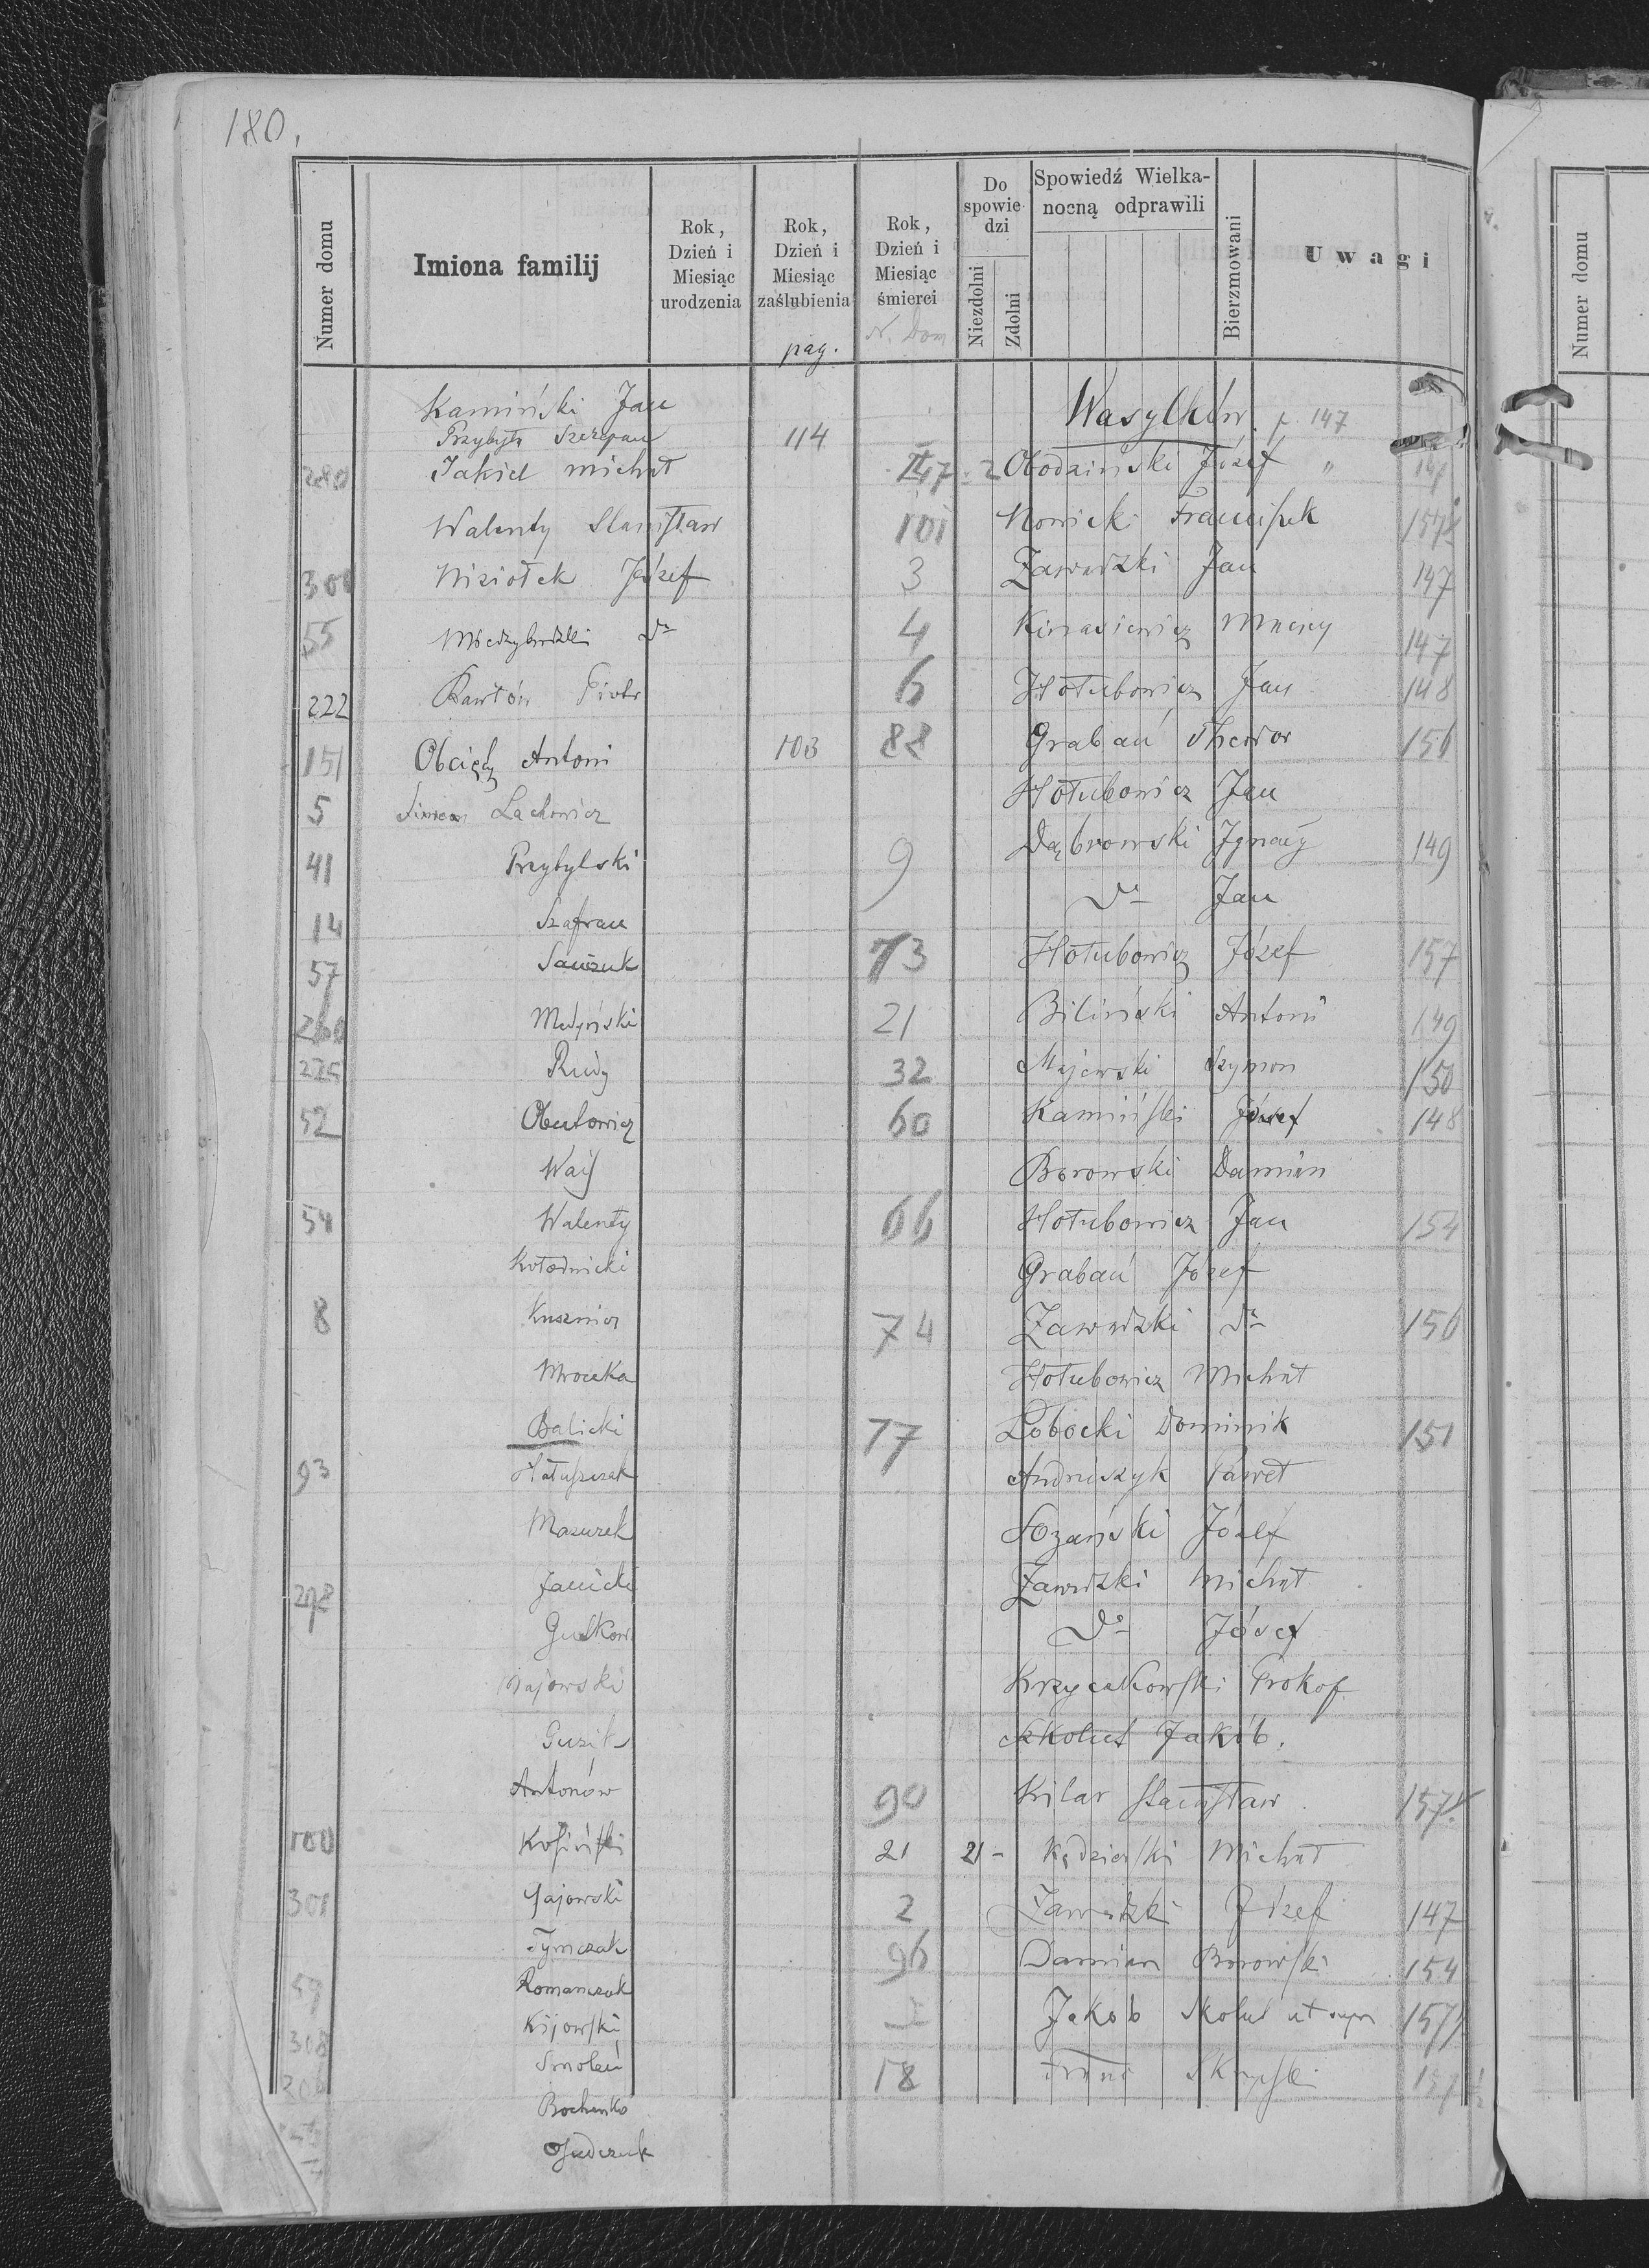 180.
Numer domu
Imiona familij
Rok, Dzień i Miesiąc urodzenia
Rok, Dzień i Miesiąc zaślubienia
pag.
Rok, Dzień i Miesiąc śmierci
N. Dom
Do spowiedzi
Niezdolni
Zdolni
Spowiedź Wielkanocną odprawili
Bierzmowani
Uwagi
Numer domu
Kamiński Jan
Wasylków. p. 147
Przybyła Szczepan 114
280 Jakiel Michał
2 Obodziński Józef "
Walenty Stanisław
101 Nowicki Franciszek 157
300 Niziołek Józef
3 Zawadzki Jan 147
55 dº
4 147
222 Pawłów Piotr
6 Hołubowicz Jan 148
151 Obcięty Antoni 103
88 Grabań Theodor 156
5 Simeon Lachowicz
Hołubowicz Jan
41 Przybylski
9 Dąbrowski Ignacy 149
14 Szafran
dº Jan
57 Sawczuk
73 Hołubowicz Józef 157
260 Medyński
21 Biliński Antoni 149
225 Rudy
32 Majewski Szymon 150
52 Obutowicz
60 Kamiński Józef 148
Borowski Damian
54 Walenty
66 Hołubowicz Jan 154
Kołodnicki
Grabań Józef
8 Kuszmicz
74 Zawadzki dº 150
Mroczka
Hołubowicz Michał
Balicki
77 Łobocki Dominik 151
93 Hałuszczak
Andruszyk Paweł
Mazurek
Łozański Józef
298 Janicki
Zawadzki Michał
Gutkow
dº Józef
Majowski
Krzyczkowski Prokop
Guzik
Skolut Jakób.
Antonów
90 Kilar Stanisław 157
100 Kosiński
21 21 - Kędzierski Michał
301 Gajowski
2 Zawadzki Józef 147
Tymczak
96 Damian Borowski 154
59 Romanczuk
Jakob Skolut ut supra 157
308 Kijowski
Smoleń
18
206
Bochenko
Judczuk